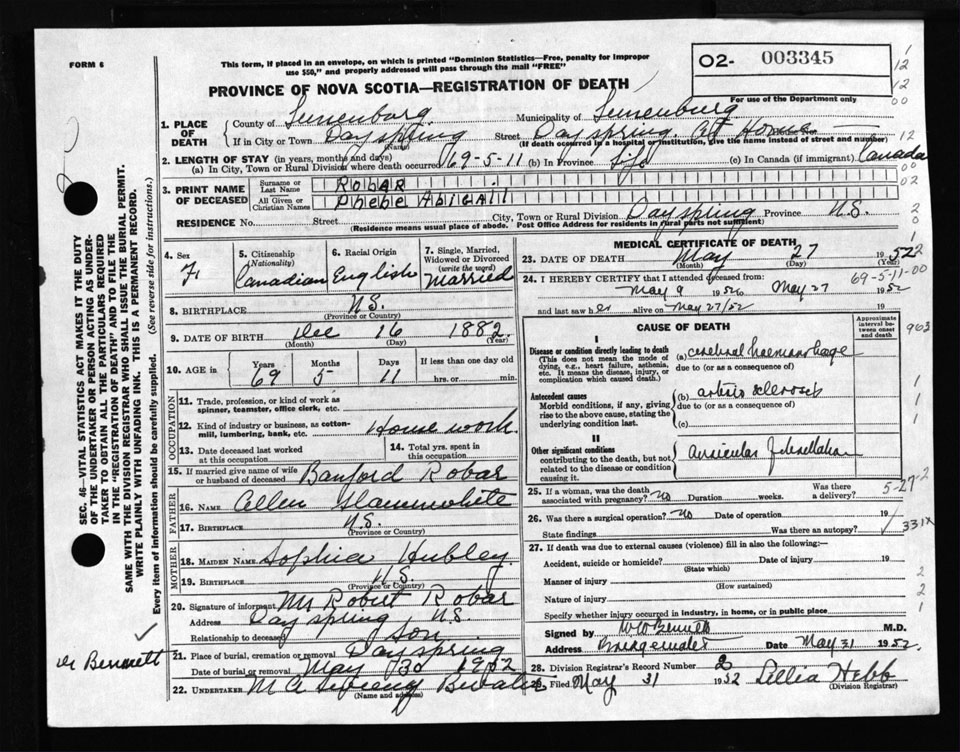 FORM 6
This form, if placed in an envelope, on which is printed "Dominion Statistics—Free, penalty for improper
use $50," and properly addressed will pass through the mail "FREE"
O2- 003345
PROVINCE OF NOVA SCOTIA—REGISTRATION OF DEATH
For use of the Department only
12
12
00
1. PLACE OF DEATH
County of Lunenburg Municipality of Lunenburg
If in City or Town Dayspring Street Dayspring. At Home
(Name) (If death occurred in a hospital or institution, give the name instead of street and number)
12
2. LENGTH OF STAY (in years, months and days)
(a) In City, Town or Rural Division where death occurred 69-5-11 (b) In Province life (c) In Canada (if immigrant) Canada
00
02
3. PRINT NAME OF DECEASED
Surname or Last Name Robar
All Given or Christian Names Phebe Abigaill
RESIDENCE No. Street City, Town or Rural Division Dayspring Province N.S.
(Residence means usual place of abode. Post Office Address for residents in rural parts not sufficient)
2
0
4. Sex F.
5. Citizenship (Nationality) Canadian
6. Racial Origin English
7. Single, Married, Widowed or Divorced (write the word) Married
8. BIRTHPLACE N.S.
(Province or Country)
9. DATE OF BIRTH Dec 16 1882
(Month) (Day) (Year)
10. AGE in Years 69 Months 5 Days 11 If less than one day old
hrs. or min.
OCCUPATION
11. Trade, profession, or kind of work as
spinner, teamster, office clerk, etc.
12. Kind of industry or business, as cotton-
mill, lumbering, bank, etc. House work.
13. Date deceased last worked
at this occupation
14. Total yrs. spent in
this occupation
15. If married give name of wife
or husband of deceased Banford Robar
FATHER
16. NAME Allen
17. BIRTHPLACE N.S.
(Province or Country)
MOTHER
18. MAIDEN NAME Sophia Hubley
19. BIRTHPLACE N.S.
(Province or Country)
20. Signature of informant Mr Robert Robar
Address Dayspring N.S.
Relationship to deceased Son
21. Place of burial, cremation or removal Dayspring
Date of burial or removal May 30 1952
22. UNDERTAKER
(Name and address)
MEDICAL CERTIFICATE OF DEATH
23. DATE OF DEATH May 27 1952
(Month) (Day) (Year)
2
24. I HEREBY CERTIFY that I attended deceased from: 69-5-11-00
May 9 1952 to May 27 1952
and last saw her alive on May 27/52 19
CAUSE OF DEATH
Approximate interval between onset and death
903
I
Disease or condition directly leading to death
(This does not mean the mode of
dying, e.g., heart failure, asthenia,
etc. It means the disease, injury, or
complication which caused death.)
(a) cerebral haemorrhage
due to (or as a consequence of)
Antecedent causes
Morbid conditions, if any, giving
rise to the above cause, stating the
underlying condition last.
(b) arterio sclerosis
due to (or as a consequence of)
(c)
1
1
1
II
Other significant conditions
contributing to the death, but not
related to the disease or condition
causing it.
auricular fibrillation
25. If a woman, was the death
associated with pregnancy? No Duration weeks. Was there
a delivery?
5-27-2
26. Was there a surgical operation? No Date of operation 19
State findings Was there an autopsy?
331X
27. If death was due to external causes (violence) fill in also the following:
Accident, suicide or homicide? Date of injury 19
(State which)
Manner of injury
(How sustained)
Nature of injury
Specify whether injury occurred in industry, in home, or in public place
2
2
1
Signed by W A Bennett M.D.
Address Bridgewater Date May 31 1952.
28. Division Registrar's Record Number 2
29. Filed May 31 1952 Lellia Hebb
(Division Registrar)
Dr Bennett
SEC. 46—VITAL STATISTICS ACT MAKES IT THE DUTY
OF THE UNDERTAKER OR PERSON ACTING AS UNDER-
TAKER TO OBTAIN ALL THE PARTICULARS REQUIRED
IN THE "REGISTRATION OF DEATH" AND TO FILE THE
SAME WITH THE DIVISION REGISTRAR WHO SHALL ISSUE THE BURIAL PERMIT.
WRITE PLAINLY WITH UNFADING INK. THIS IS A PERMANENT RECORD.
Every item of information should be carefully supplied. (See reverse side for instructions.)